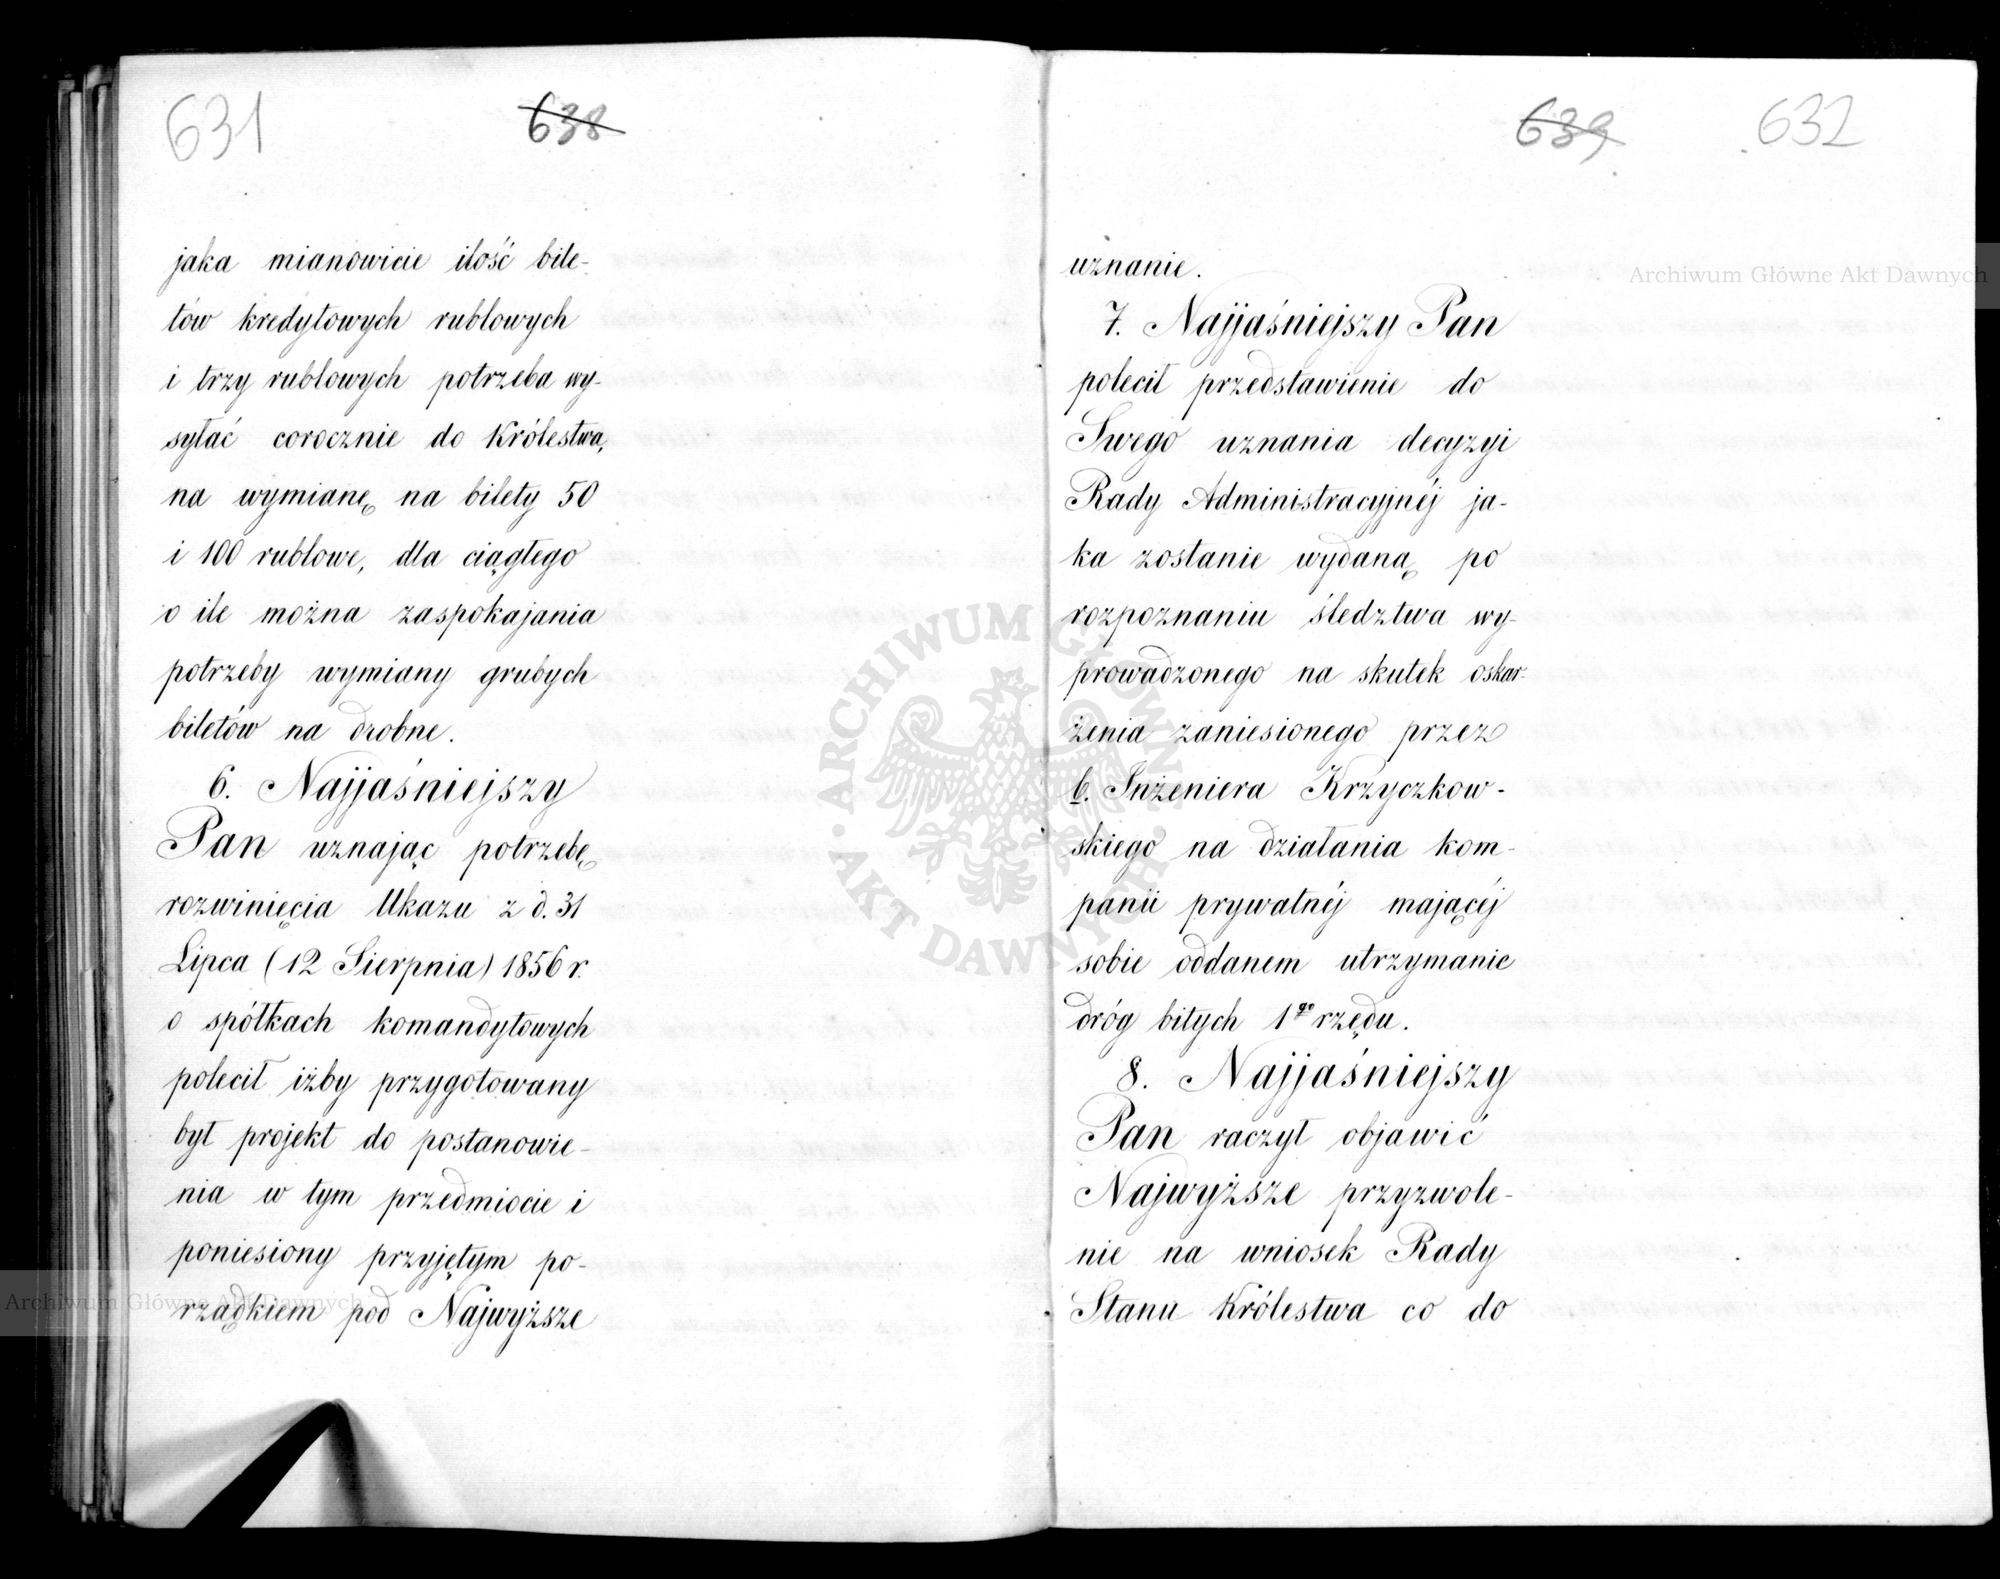 631
638
jaka mianowicie ilość bile-
tów kredytowych rublowych
i trzy rublowych potrzeba wy-
syłać corocznie do Królestwa,
na wymianę na bilety 50
i 100 rublowe, dla ciągłego
o ile można zaspokajania
potrzeby wymiany grubych
biletów na drobne.
6. Najjaśniejszy
Pan uznając potrzebę
rozwinięcia Ukazu z d. 31
Lipca (12 Sierpnia) 1856 r.
o spółkach komandytowych
polecił iżby przygotowany
był projekt do postanowie-
nia w tym przedmiocie i
poniesiony przyjętym po-
rządkiem pod Najwyższe
639
632
uznanie.
7. Najjaśniejszy Pan
polecił przedstawienie do
Swego uznania decyzyi
Rady Administracyjnéj ja-
ka zostanie wydaną po
rozpoznaniu śledztwa wy-
prowadzonego na skutek oskar-
żenia zaniesionego przez
b. Inżeniera Krzyczkow-
skiego na działania kom-
panii prywatnéj mającéj
sobie oddanem utrzymanie
dróg bitych 1go rzędu.
8. Najjaśniejszy
Pan raczył objawić
Najwyższe przyzwole-
nie na wniosek Rady
Stanu Królestwa co do
Archiwum Główne Akt Dawnych
Archiwum Główne Akt Dawnych
ARCHIWUM GŁÓWNE AKT DAWNYCH